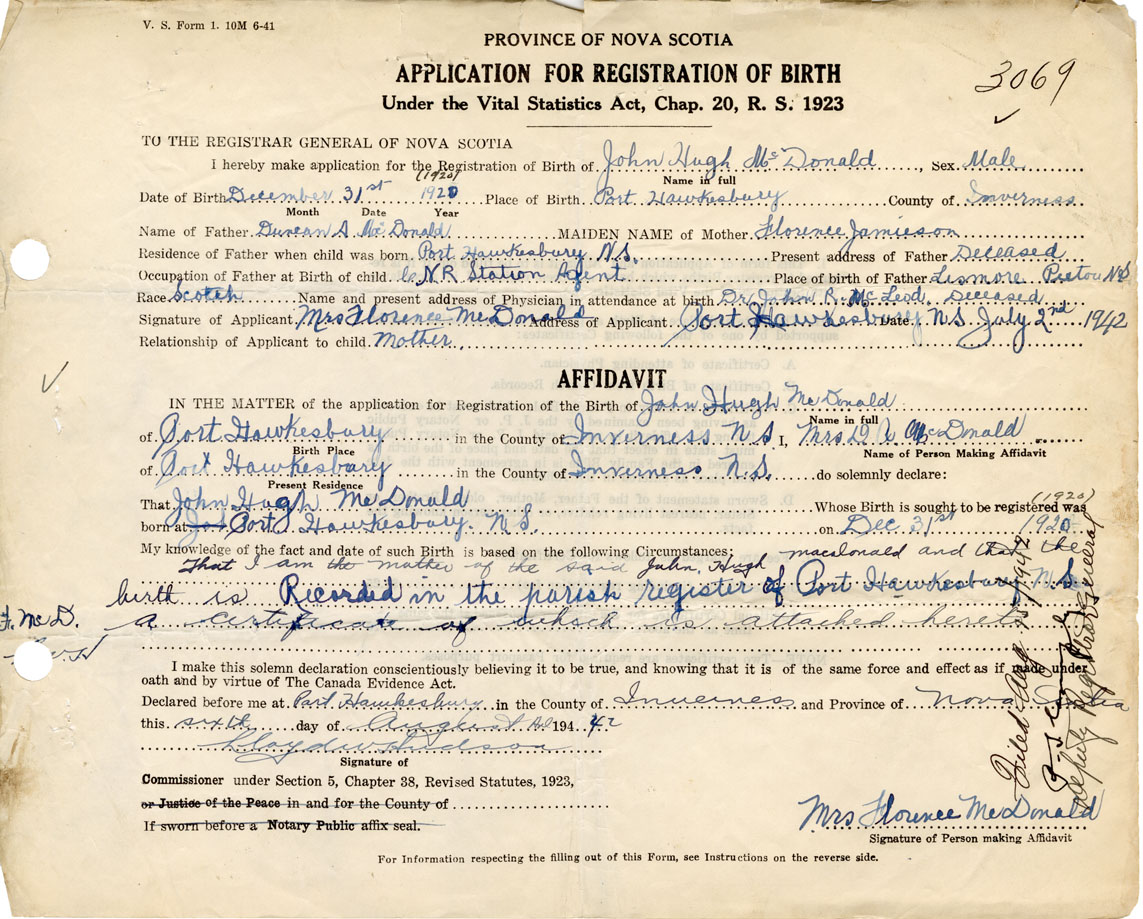 V. S. Form 1. 10M 6-41
PROVINCE OF NOVA SCOTIA
APPLICATION FOR REGISTRATION OF BIRTH
3069
Under the Vital Statistics Act, Chap. 20, R. S. 1923
TO THE REGISTRAR GENERAL OF NOVA SCOTIA
I hereby make application for the Registration of Birth of John Hugh McDonald, Sex Male
Name in full
(1920)
Date of Birth December 31st 1920 Place of Birth Port Hawkesbury County of Inverness
Month Date Year
Name of Father Duncan A McDonald MAIDEN NAME of Mother Florence Jamieson
Residence of Father when child was born. Port Hawkesbury N.S. Present address of Father Deceased
Occupation of Father at Birth of child. C.N.R Station Agent Place of birth of Father Lismore Pictou N.S
Race Scotch Name and present address of Physician in attendance at birth Dr John R. McLeod. Deceased
Signature of Applicant Mrs Florence McDonald Address of Applicant Port Hawkesbury N.S Date July 2nd 1942
Relationship of Applicant to child. Mother
AFFIDAVIT
IN THE MATTER of the application for Registration of the Birth of John Hugh McDonald
Name in full
of Port Hawkesbury in the County of Inverness N.S I, Mrs D A McDonald
Birth Place Name of Person Making Affidavit
of Port Hawkesbury in the County of Inverness N.S. do solemnly declare:
Present Residence
That John Hugh McDonald Whose Birth is sought to be registered was
(1920)
born at Port Hawkesbury. N.S. on Dec 31st 1920
My knowledge of the fact and date of such Birth is based on the following Circumstances;
That I am the mother of the said John Hugh macdonald and that the
birth is Recorded in the parish register of Port Hawkesbury N.S.
F. McD. a certificate of which is attached hereto
I make this solemn declaration conscientiously believing it to be true, and knowing that it is of the same force and effect as if made under
oath and by virtue of The Canada Evidence Act.
Declared before me at Port Hawkesbury in the County of Inverness and Province of Nova Scotia
this sixth day of August AD 1942
Signature of
Commissioner under Section 5, Chapter 38, Revised Statutes, 1923,
or Justice of the Peace in and for the County of
If sworn before a Notary Public affix seal.
Mrs Florence McDonald
Signature of Person making Affidavit
For Information respecting the filling out of this Form, see Instructions on the reverse side.
Filed Aug 1942
Deputy Registrar General